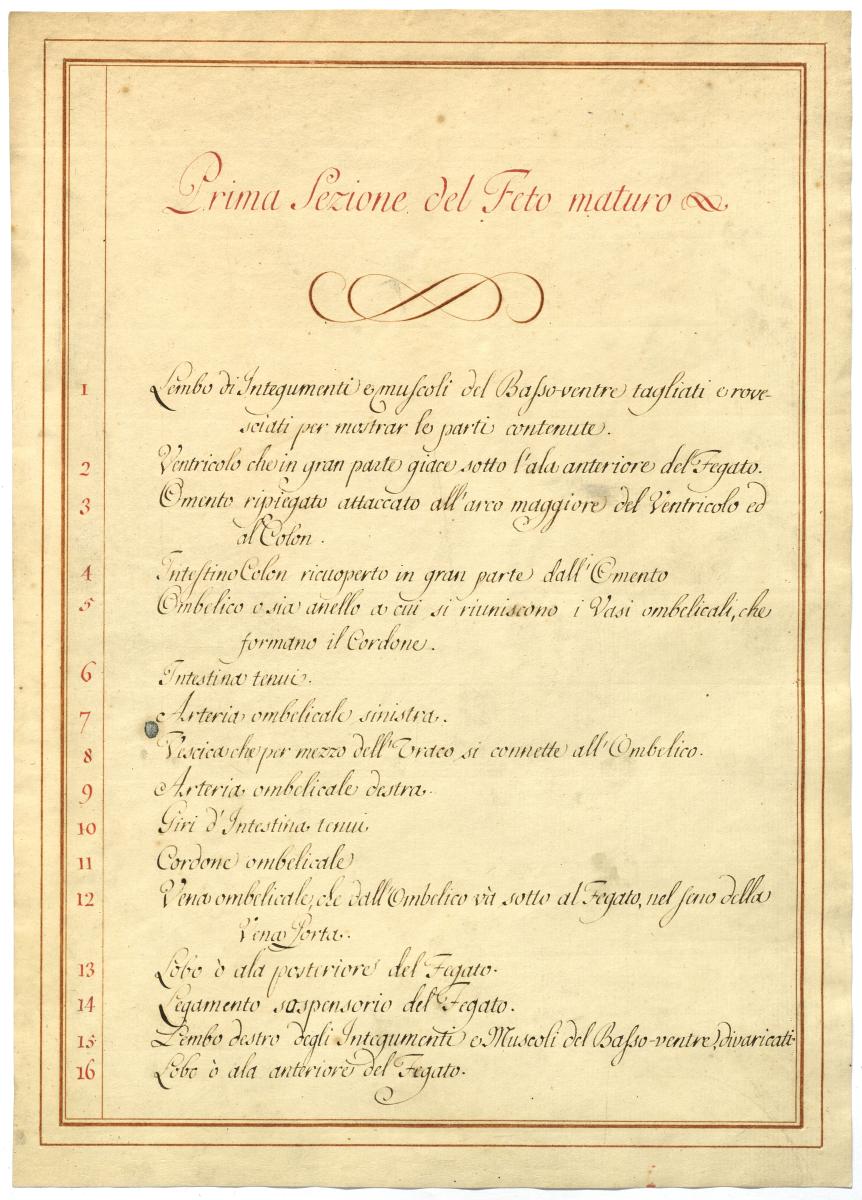 Prima Sezione del Feto maturo
1 Lembo di Integumenti e muscoli del Basso-ventre tagliati e rove-
sciati per mostrar le parti contenute.
2 Ventricolo che in gran parte giace sotto l'ala anteriore del Fegato.
3 Omento ripiegato attaccato all'arco maggiore del Ventricolo ed
al Colon.
4 Intestino Colon ricuoperto in gran parte dall'Omento
5 Ombelico o sia anello a cui si riuniscono i Vasi ombelicali, che
formano il Cordone.
6 Intestina tenui.
7 Arteria ombelicale sinistra.
8 Vescica che per mezzo dell'Uraco si connette all'Ombelico.
9 Arteria ombelicale destra.
10 Giri d'Intestina tenui
11 Cordone ombelicale
12 Vena ombelicale, che dall'Ombelico và sotto al Fegato, nel seno della
Vena Porta.
13 Lobo ò ala posteriore del Fegato.
14 Legamento sospensorio del Fegato.
15 Lembo destro degli Integumenti e Muscoli del Basso-ventre, divaricati.
16 Lobo ò ala anteriore del Fegato.